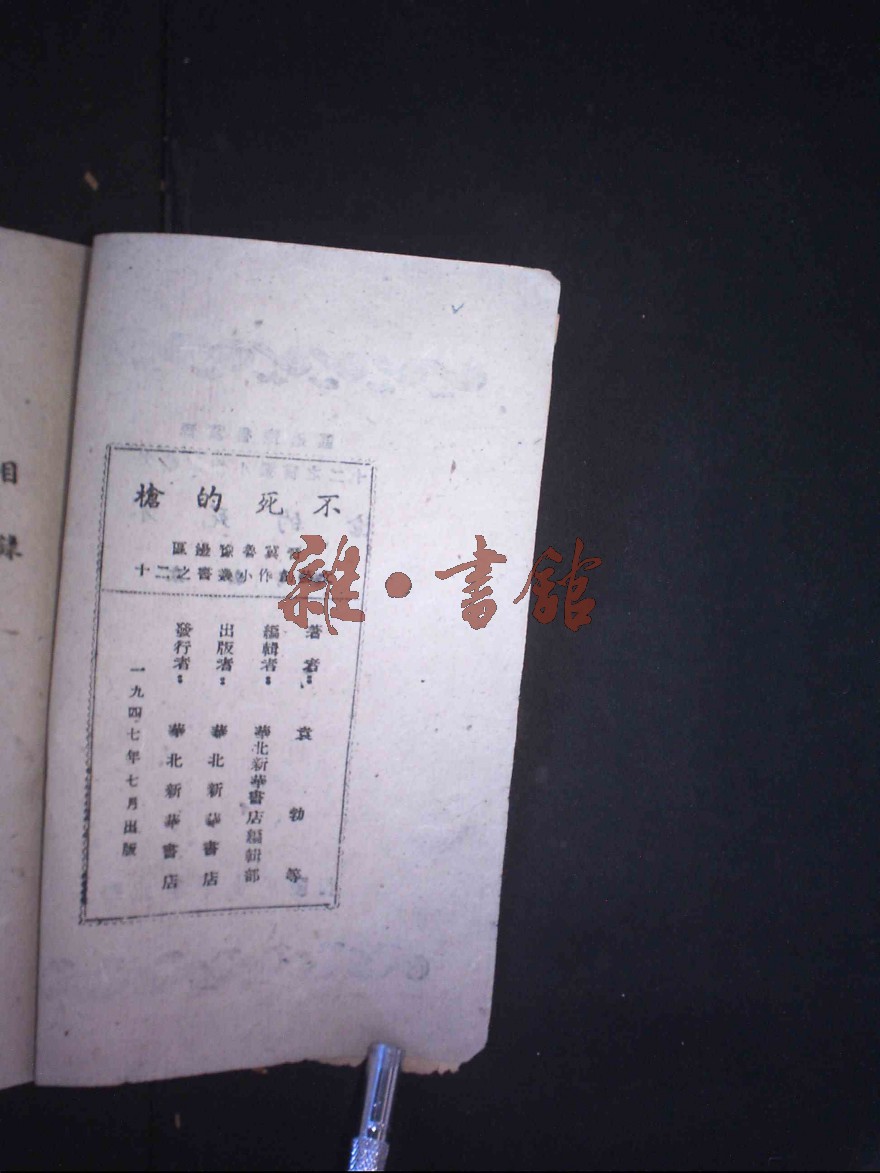 不死的槍
晉冀魯豫邊區
創作小叢書之二十
著者：袁勃等
編輯者：華北新華書店編輯部
出版者：華北新華書店
發行者：華北新華書店
一九四七年七月出版
目錄
雜·書館